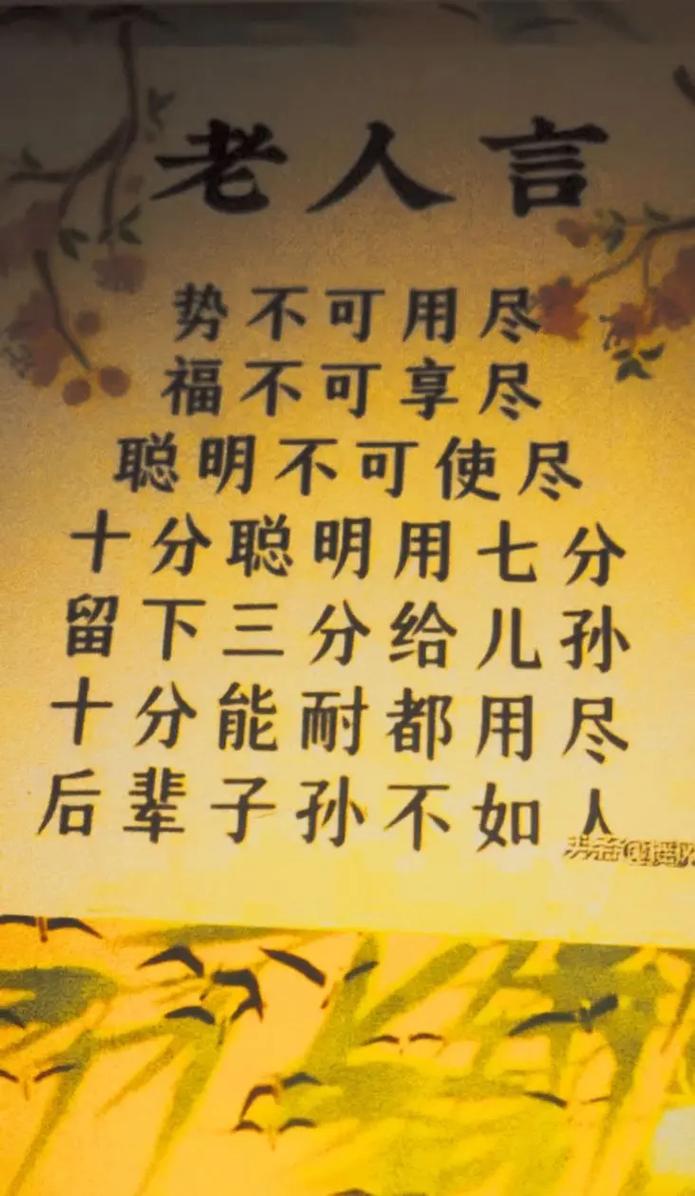 老人言
势不可用尽
福不可享尽
聪明不可使尽
十分聪明用七分
留下三分给儿孙
十分能耐都用尽
后辈子孙不如人